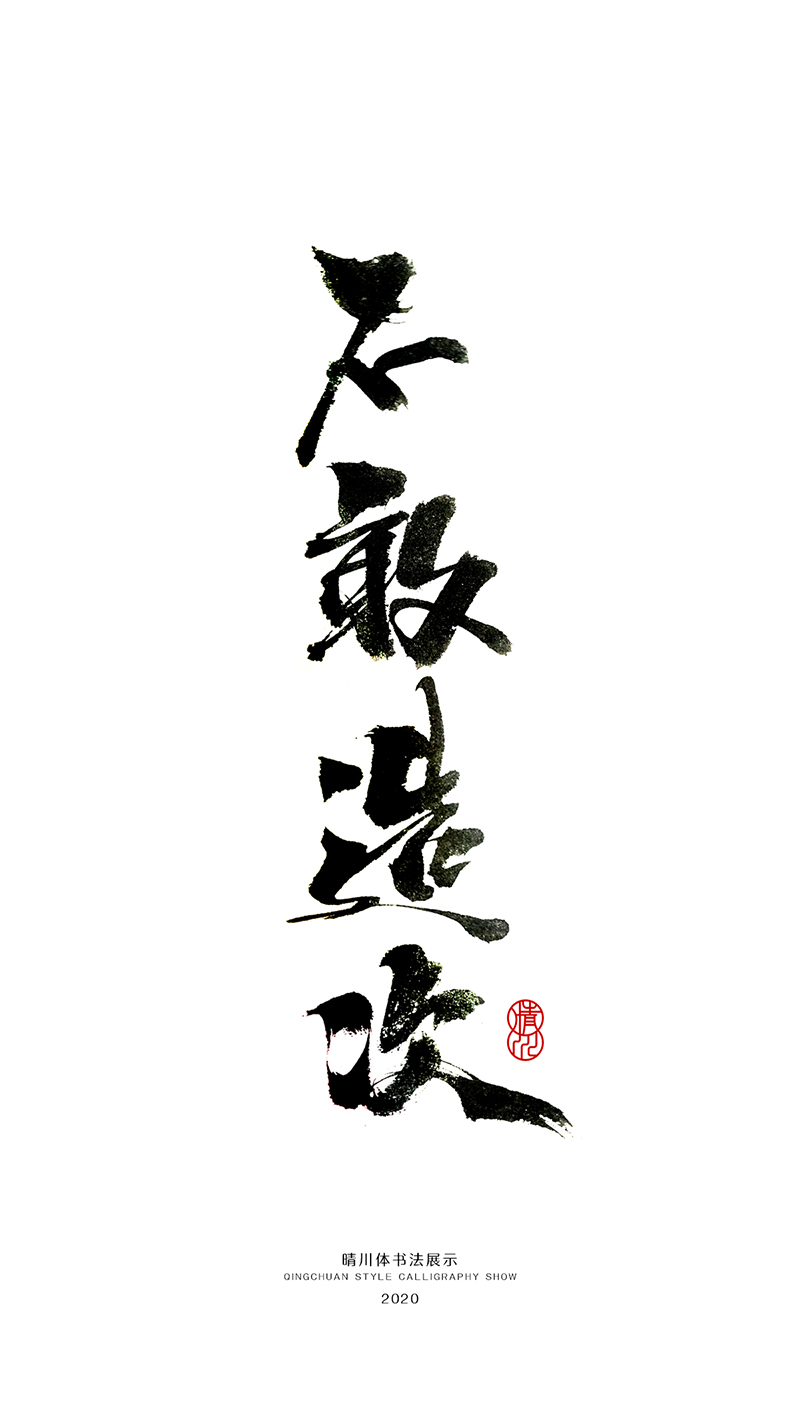 不敢造次
晴川
晴川体书法展示
QINGCHUAN STYLE CALLIGRAPHY SHOW
2020